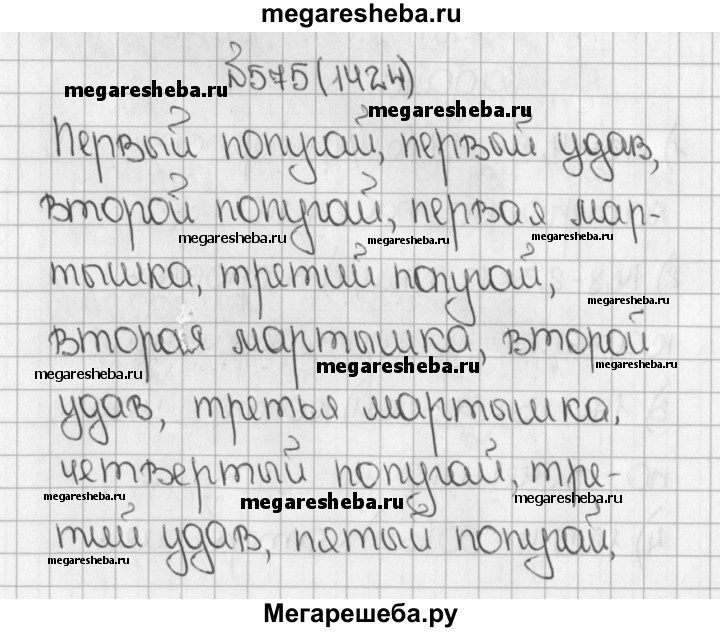 megaresheba.ru
№575(1424)
megaresheba.ru
megaresheba.ru
Первый попугай, первый удав,
второй попугай, первая мар-
megaresheba.ru megaresheba.ru megaresheba.ru
тышка, третий попугай,
megaresheba.ru
вторая мартышка, второй
megaresheba.ru megaresheba.ru megaresheba.ru
удав, третья мартышка,
четвертый попугай, тре-
megaresheba.ru megaresheba.ru megaresheba.ru
тий удав, пятый попугай,
megaresheba.ru megaresheba.ru
Мегарешеба.ру